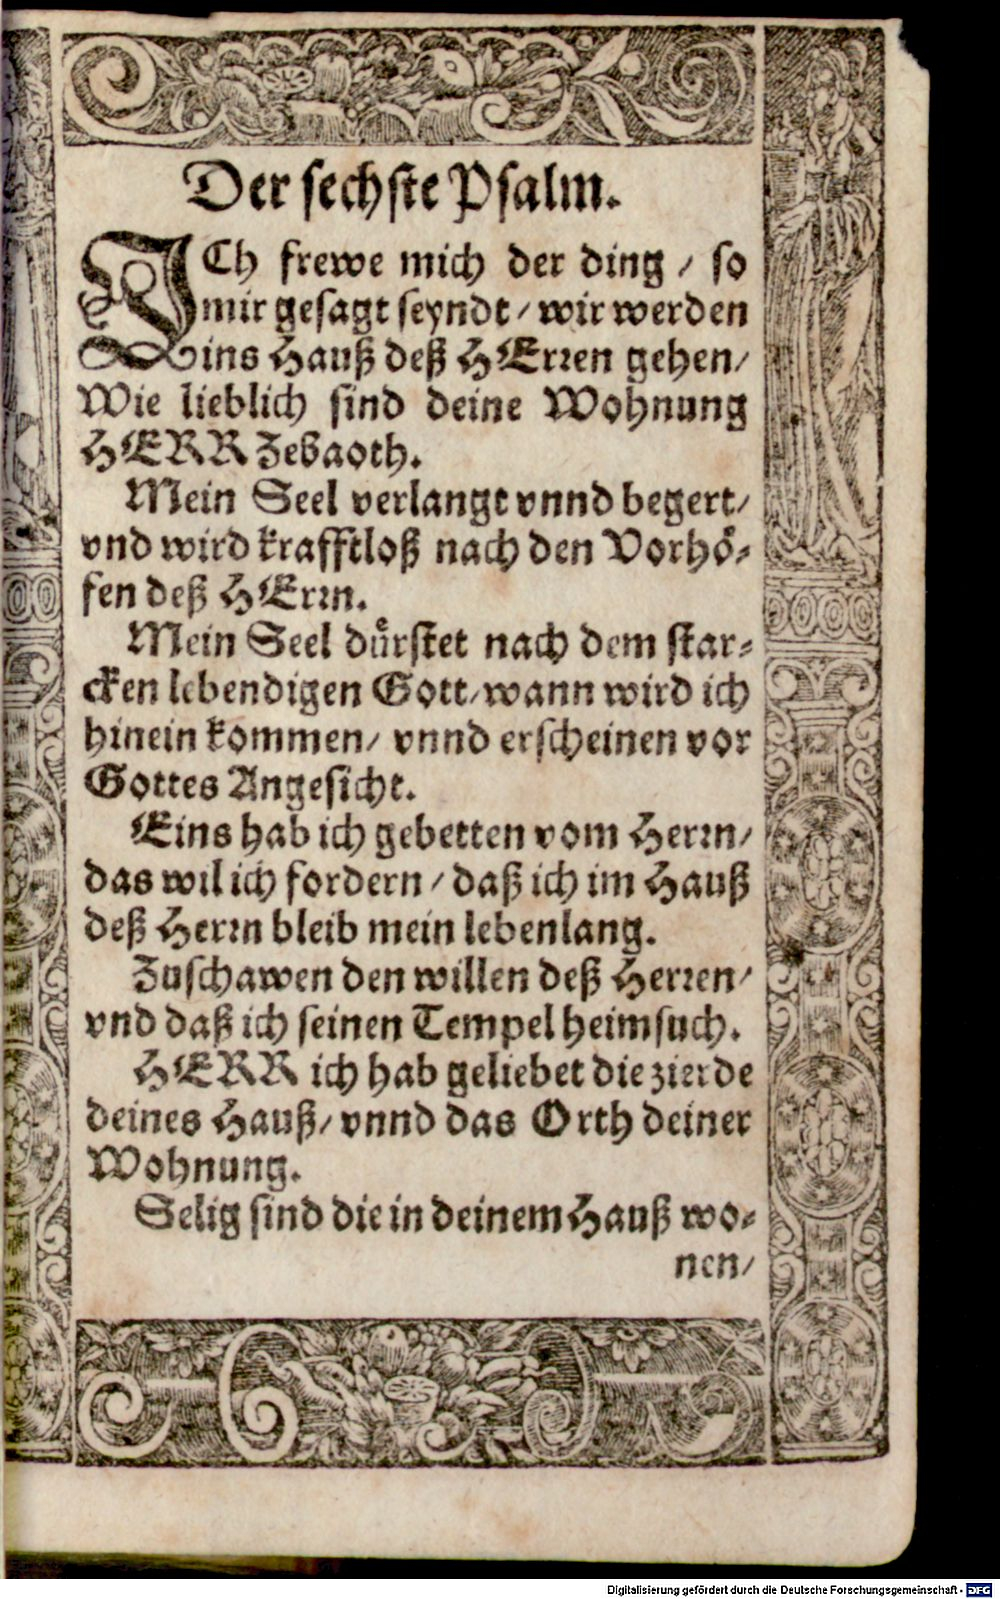 Der sechste Psalm.
ICh frewe mich der ding / so
mir gesagt seyndt / wir werden
ins Hauß deß HErren gehen /
Wie lieblich sind deine Wohnung
HERR Zebaoth.
Mein Seel verlangt vnnd begert /
vnd wird krafftloß nach den Vorhö-
fen deß HErrn.
Mein Seel dürstet nach dem star-
cken lebendigen Gott / wann wird ich
hinein kommen / vnnd erscheinen vor
Gottes Angesicht.
Eins hab ich gebetten vom Herrn /
das wil ich fordern / daß ich im Hauß
deß Herrn bleib mein lebenlang.
Zuschawen den willen deß Herren /
vnd daß ich seinen Tempel heimsuch.
HERR ich hab geliebet die zierde
deines Hauß / vnnd das Orth deiner
Wohnung.
Selig sind die in deinem Hauß wo-
nen /
Digitalisierung gefördert durch die Deutsche Forschungsgemeinschaft - DFG